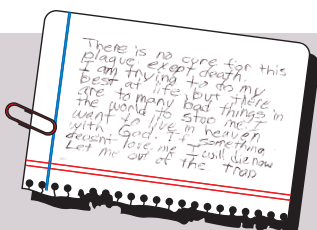 There is no cure for this
plague exept death.
I am trying to do my
best at life, but there
are to many bad things in
the world to stop me. I
want to live in heaven
with God. If something
doesnt love me I will die now
Let me out of the trap